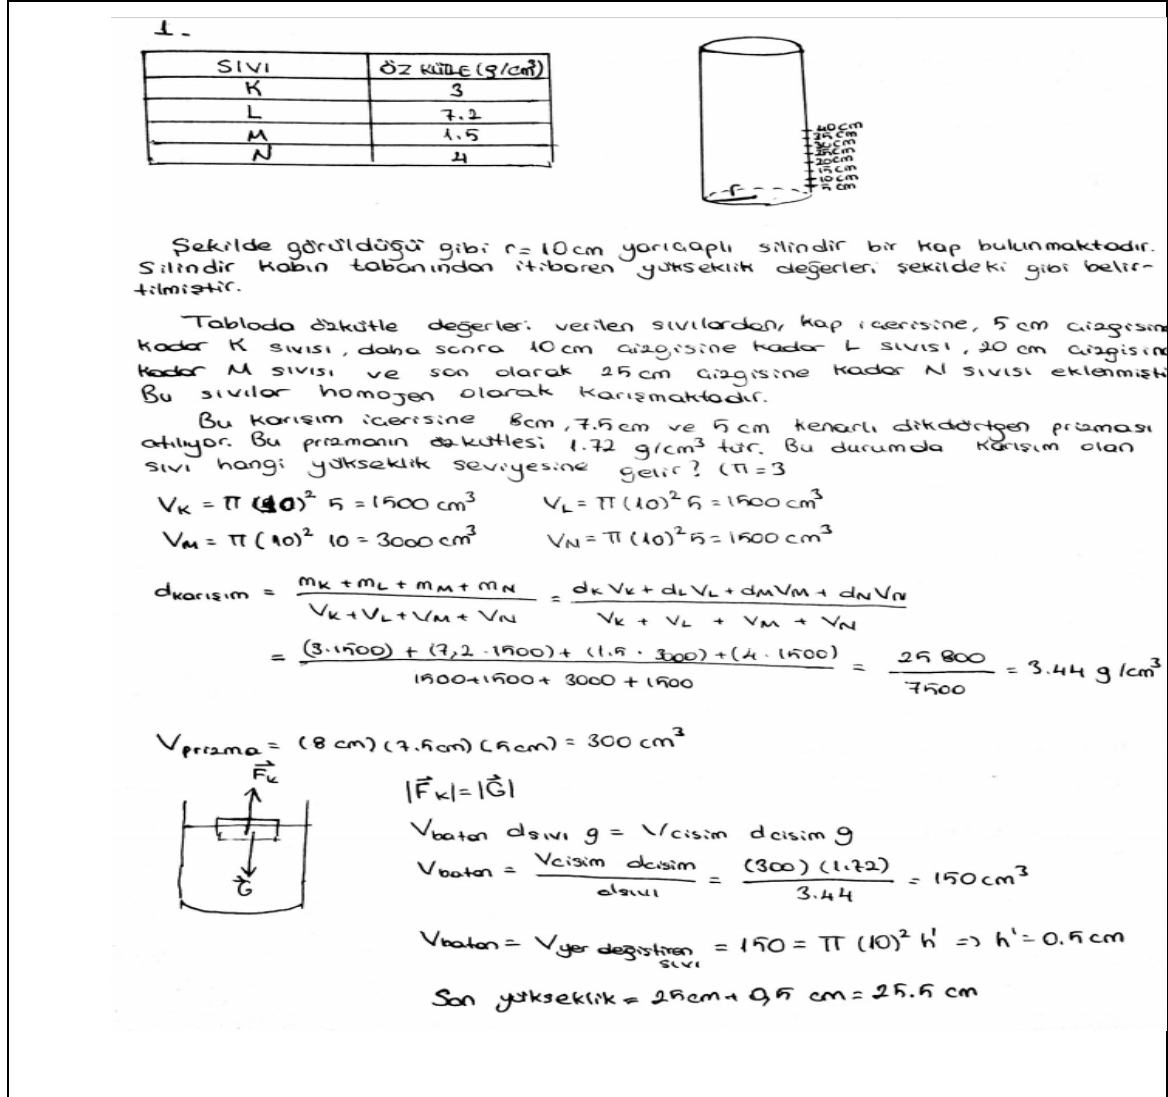 1.
SIVI ÖZ KÜTLE (g/cm³)
K 3
L 7.2
M 1.5
N 4
40 cm
35 cm
30 cm
25 cm
20 cm
15 cm
10 cm
5 cm
r
Şekilde görüldüğü gibi r = 10 cm yarıçaplı silindir bir kap bulunmaktadır.
Silindir kabın tabanından itibaren yükseklik değerleri şekildeki gibi belir-
tilmiştir.
Tabloda özkütle değerleri verilen sıvılardan, kap içerisine, 5 cm çizgisin
kadar K sıvısı, daha sonra 10 cm çizgisine kadar L sıvısı, 20 cm çizgisin
kadar M sıvısı ve son olarak 25 cm çizgisine kadar N sıvısı eklenmişti
Bu sıvılar homojen olarak karışmaktadır.
Bu karışım içerisine 8cm, 7.5 cm ve 5 cm kenarlı dikdörtgen prizması
atılıyor. Bu prizmanın özkütlesi 1.72 g/cm³ tür. Bu durumda karışım olan
sıvı hangi yükseklik seviyesine gelir? (π = 3
V_K = π (10)² 5 = 1500 cm³ V_L = π (10)² 5 = 1500 cm³
V_M = π (10)² 10 = 3000 cm³ V_N = π (10)² 5 = 1500 cm³
d_karışım = (m_K + m_L + m_M + m_N) / (V_K + V_L + V_M + V_N) = (d_K V_K + d_L V_L + d_M V_M + d_N V_N) / (V_K + V_L + V_M + V_N)
= ((3.1500) + (7,2 . 1500) + (1.5 . 3000) + (4 . 1500)) / (1500+1500+ 3000 + 1500) = 25 800 / 7500 = 3.44 g/cm³
V_prizma = (8 cm) (7.5cm) (5cm) = 300 cm³
F_K
G
|F_K| = |G|
V_batan d_sıvı g = V_cisim d_cisim g
V_batan = (V_cisim d_cisim) / d_sıvı = ((300) (1.72)) / 3.44 = 150 cm³
V_batan = V_yer değiştiren sıvı = 150 = π (10)² h' => h' = 0.5 cm
Son yükseklik = 25cm + 0,5 cm = 25.5 cm